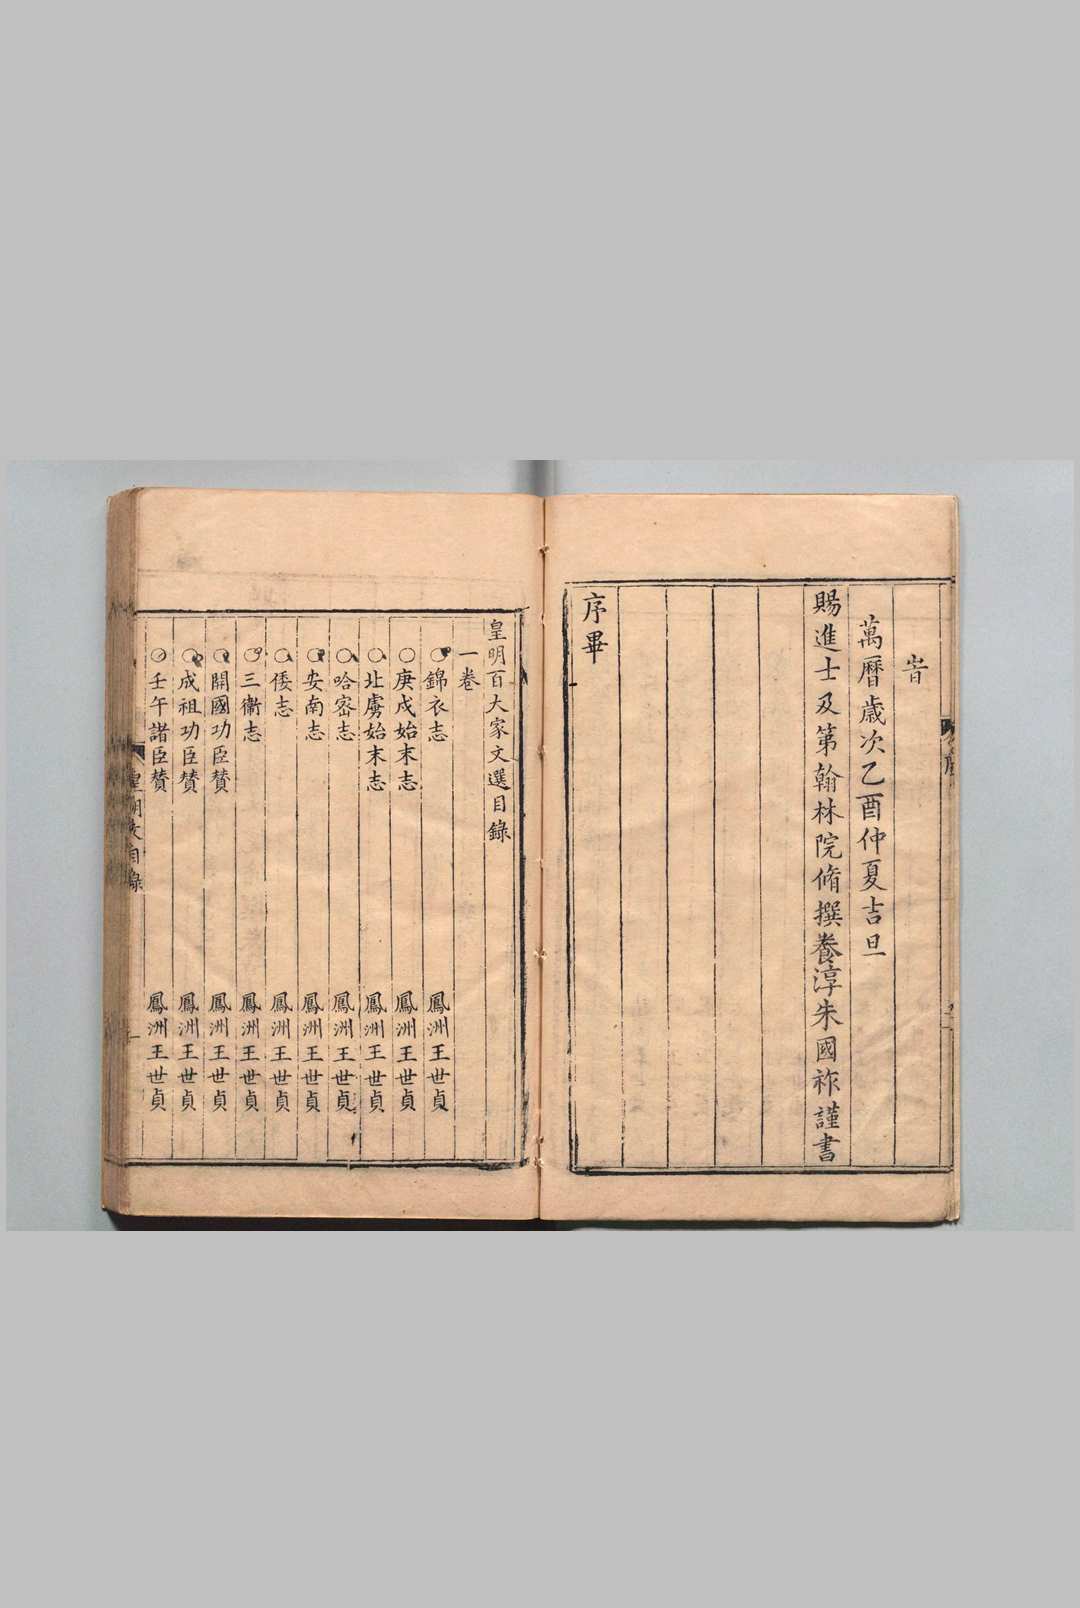 旹
萬曆歳次乙酉仲夏吉旦
賜進士及第翰林院脩撰養淳朱國祚謹書
序畢
皇明百大家文選目錄
一卷
○錦衣志 鳳洲王世貞
○庚戌始末志 鳳洲王世貞
○北虜始末志 鳳洲王世貞
○哈密志 鳳洲王世貞
○安南志 鳳洲王世貞
○倭志 鳳洲王世貞
○三衞志 鳳洲王世貞
○開國功臣賛 鳳洲王世貞
○成祖功臣賛 鳳洲王世貞
○壬午諸臣賛 鳳洲王世貞
皇明文目錄
一